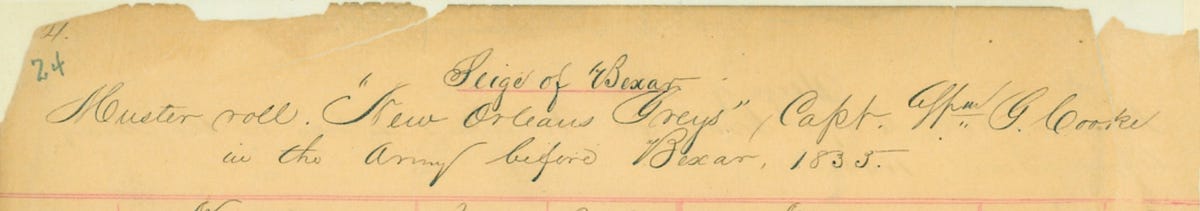 4.
24
Seige of Bexar
Muster roll. "New Orleans Greys", Capt. Wm. G. Cooke
in the Army before Bexar, 1835.